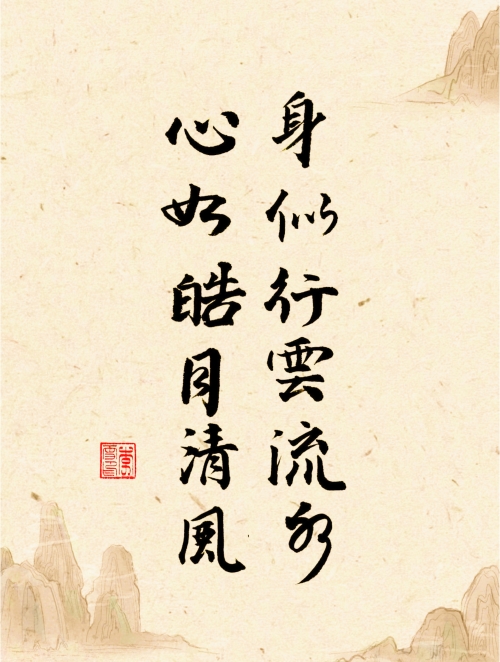 身似行雲流水
心如皓月清風